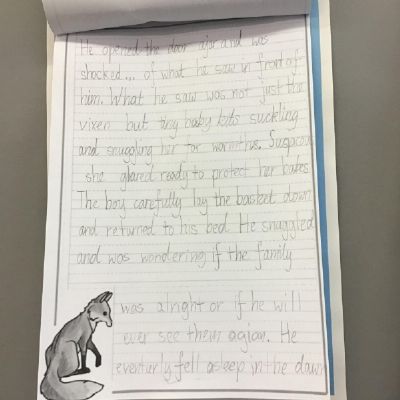 He opened the door ajar and was
shocked... of what he saw in front of
him. What he saw was not just the
vixen but tiny baby kits suckling
and snuggling her for warmths. Suspicous
she glared ready to protect her babes
The boy carefully lay the basket down
and returned to his bed. He snuggled
and was wondering if the family
was alright or if he will
ever see them agian. He
eventurly fell asleep in the dawn